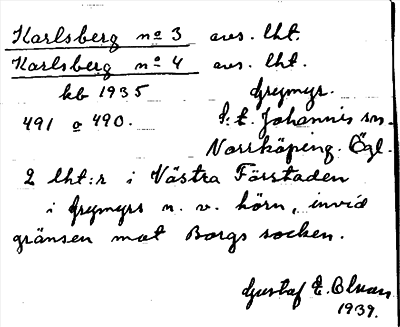 Karlsberg nº 3 avs. lht.
Karlsberg nº 4 avs. lht.
kb 1935 Grymyr.
491 o 490. S:t. Johannis sn.
Norrköping. Ögl.
2 lht:r i Västra Förstaden
i Grymyrs n. v. hörn, invid
gränsen mot Borgs socken.
Gustaf E. Olson
1939.